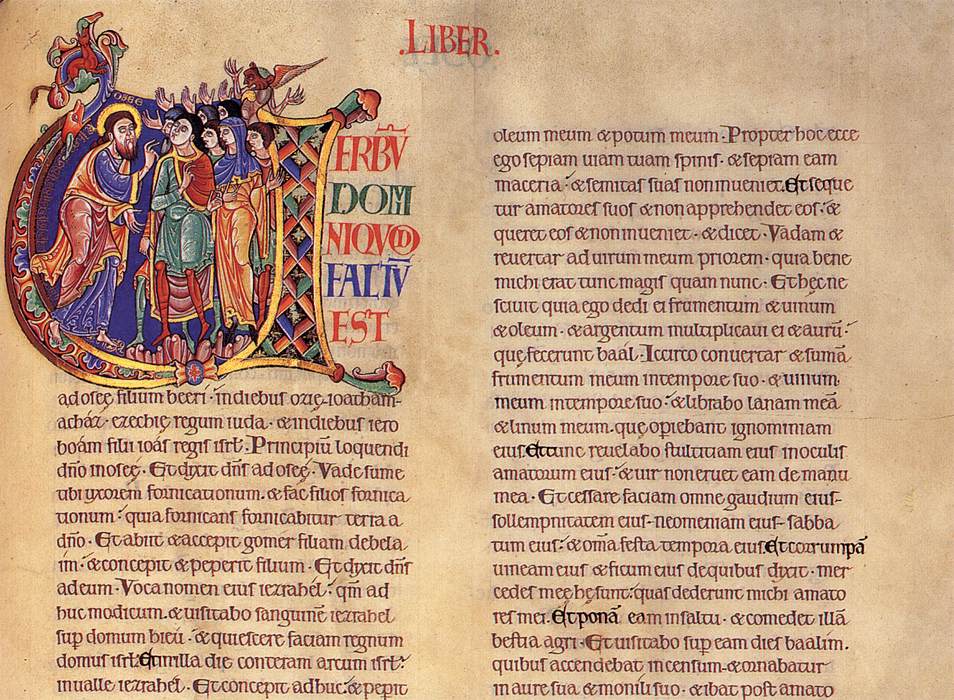 .LIBER.
OSEE
ERBV̄
DOMI
NIQVOD
FACTV̄
EST
ad osee filium beeri · in diebus ozie · ioathan ·
achaz · ezechie regum iuda · & in diebus iero
boám filii ioás regis isrł · Principiū loquendi
dn̄o in oseę · Et dixit dn̄s ad oseę · Vade sume
tibi uxorem fornicationum · & fac filios fornica
tionum · quia fornicans fornicabitur terra a
dn̄o · Et abiit & accepit gomer filiam debela
im · & concepit & peperit filium · Et dixit dn̄s
ad eum · Voca nomen eius iezrahel · qm̄ ad
huc modicum · & uisitabo sanguinē iezrahel
sup domum hieu · & quiescere faciam regnum
domus isrł · Et in illa die conteram arcum isrł ·
in ualle iezrahel · Et concepit adhuc · & pepit
oleum meum & potum meum · Propter hoc ecce
ego sepiam uiam tuam spinis · & sepiam eam
maceria · & semitas suas non inueniet. Et seque
tur amatores suos & non apprehendet eos · &
queret eos & non inueniet · & dicet · Vadam &
reuertar ad uirum meum priorem · quia bene
michi erat tunc magis quam nunc · Et hec ne
sciuit quia ego dedi ei frumentum & uinum
& oleum · & argentum multiplicaui ei & aurū ·
quę fecerunt baál · Iccirco conuertar & sumā
frumentum meum in tempore suo · & uinum
meum in tempore suo · & librabo lanam meā
& linum meum · que opiebant ignominiam
eius. Et tunc reuelabo stultitiam eius in oculis
amatorum eius · & uir non eruet eam de manu
mea · Et cessare faciam omne gaudium eius ·
sollempnitatem eius · neomeniam eius · sabba
tum eius · & om̄a festa tempora eius. Et corrumpā
uineam eius & ficum eius de quibus dixit · mer
cedes meę hę sunt · quas dederunt michi amato
res mei. Et ponā eam in saltu · & comedet illā
bestia agri · Et uisitabo sup eam dies baalim ·
quibus accendebat incensum · & ornabatur
in aure sua & monili suo · & ibat post amato